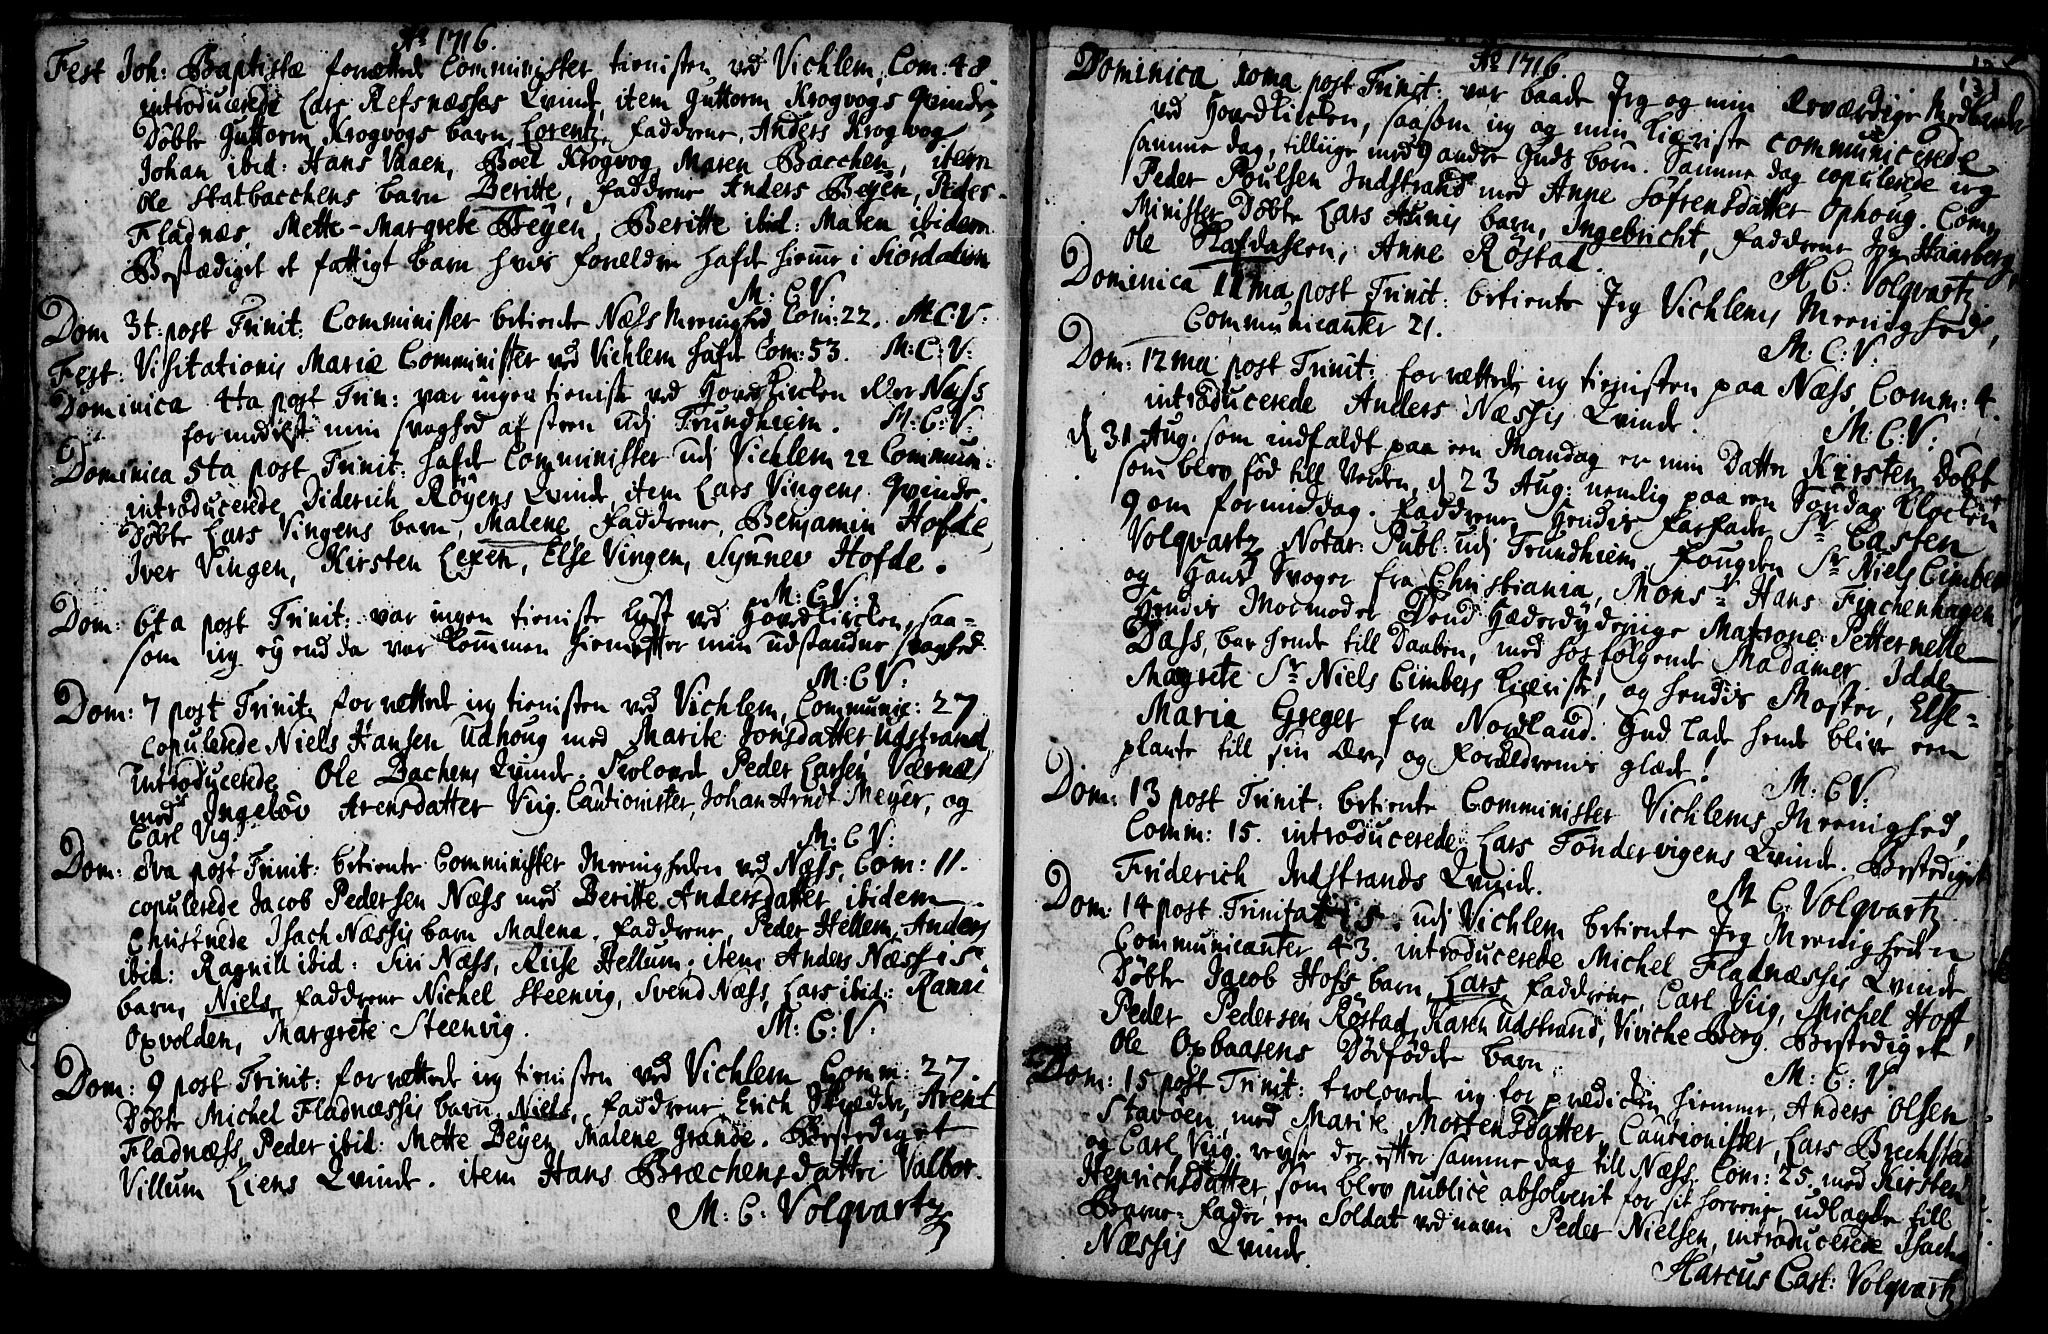 Aō 1716.
Fest Joh: Baptistæ forrettede Comminister tienisten ved Vichlem, Com: 48.
introducerede Lars Refsnæsses Qvinde, item Guttorm Krogvogs Qvinde,
Döbte Guttorm Krogvogs barn, Lorentz, faddrene, Anders Krogvog
Johan ibid: Hans Vaaen, Boel Krogvog, Maren Bacchen, item
Ole Statbacchens barn Beritte, faddrene Anders Beyen, Peder
Fladnæs, Mette-Margrete Beyen, Beritte ibid: Malen ibidem
Bestædiget et fattigt barn hvis forældre hafde hiemme i Stordalen
M: C: V:
Dom 3t: post Trinit: Comminister betiente Næss Meenighed, Com: 22. M: C: V:
Fest: Visitationis Mariæ Comminister ved Vichlem hafde Com: 53. M: C: V:
Dominica 4ta post Trin: var ingen tieniste ved Hovedkircken eller Næss
formedelst min svaghed af steen udj Trundhiem. M: C: V:
Dominica 5ta post Trinit: hafde Comminister udj Vichlem 22 Commun:
introducerede Diderich Röyens Qvinde, item Lars Vingens Qvinde.
Döbte Lars Vingens barn, Malene, faddrene, Benjamin Hofde,
Iver Vingen, Kirsten Lexen, Else Vingen, Synnev Hofde.
M: C: V:
Dom: 6ta post Trinit: var ingen tieniste holt ved Hovedkircken, saa-
som ieg ey endda var kommen hiem efter min udstandne svaghed.
M: C: V:
Dom: 7 post Trinit: forrettede ieg tienisten ved Vichlem, Communic: 27
Copulerede Niels Hansen Udhoug med Marite Jonsdatter Udstrand
Introducerede Ole Bachens Qvinde. Trolovede Peder Larsen Værnæs
med Ingebör Arensdatter Viig. Cautionister, Johan Arndt Meyer, og
Carl Vig.
M: C: V:
Dom: 8va post Trinit: betiente Comminister Meenigheden ved Næss, Com: 11.
copulerede Jacob Pedersen Næss med Beritte Andersdatter ibidem.
Christnede Isach Næssis barn Malena, faddrene, Peder Hellem, Anders
ibid: Ragnill ibid: Siri Næss, Riise Hellum. item Anders Næssis
barn, Niels, faddrene Michel Steenvig, Svend Næss, Lars ibid: Ranni
Opvolden, Margrete Steenvig.
M: C: V:
Dom: 9 post Trinit: forrettede ieg tienisten ved Vichlem Comm: 27.
Döbte Michel Fladnæssis barn, Niels, faddrene, Erich Skredder, Arent
Fladnæss, Peder ibid: Mette Beyen, Malene Grande. Bestediget
Villum Liens Qvinde. item Hans Bræchens datter Valbor.
M: C: Volqvartz
Aō 1716.
131
Dominica 10ma post Trinit: var baade Jeg og min Ærværdige Medbroder
ved Hovedkircken, saasom ieg og min kiæriste communicerede
samme dag, tilliige med 9 andre Guds börn. Samme dag copulerede ieg
Peder Poulsen Indstrand med Anne Söfrensdatter Ophoug. Com-
Minister Döbte Lars Aunis barn, Ingebricht, faddrene Jon Haarberg,
Ole Rafdasen, Anne Röstad.
M: C: Volqvartz
Dominica 11ma post Trinit: betiente Jeg Vichlems Meenighed,
Communicanter 21.
M: C: V:
Dom: 12ma post Trinit: forrettede ieg tienisten paa Næss, Comm: 4.
introducerede Anders Næssis Qvinde.
M: C: V:
d 31 Aug: som indfaldt paa een Mandag er min Datter Kirsten Döbt
som blev föd till Verden, d 23 Aug: nemlig paa een Söndag Klocken
9 om formiddag. Faddrene, Hendis Farfader, Sr Casten
Volqvartz, Notar: Publ: udj Trundhiem, Fougden Sr Niels Cimber
og Hans Svoger fra Christiania, Mons: Hans Finchenhagen
Hendis Mormoder Dend Hæderdydærige Matrone Petternelle
Dass, bar hende till Daaben, med hosfölgende Madamer, Idde
Magrete Sr Niels Cimbers kiæriste, og hendis Moster, Else-
Maria Greger fra Nordland. Gud lade hende blive een
plante till sin Ære, og forældrenis glæde!
M: C: V:
Dom: 13 post Trinit: betiente Comminister Vichlems Meenighed,
Comm: 15. introducerede Lars Töndervigens Qvinde. Bestediget
Friderich Indstrands Qvinde.
M C: Volqvartz
Dom: 14 post Trinitatis udj Vichlem betiente Jeg Meenigheden
Communicanter 43. introducerede Michel Fladnæssis Qvinde
Döbte Jacob Hofs barn, Lars, faddrene, Carl Viig, Michel Hoff,
Peder Pedersen Röstad, Karen Udstrand, Viviche Berg. Bestediget
Ole Opbaasens Dödfödde barn.
M: C: V:
Dom: 15 post Trinit: trolovede ieg for prædicken hiemme, Anders Olsen
Stavöen, med Marite Mortensdatter, Cautionister, Lars Brechstad
og Carl Viig. reyste der efter samme dag till Næss, Com: 25. med Kirsten
Henrichsdatter, som blev publicè absolverit for sit horrerie, udlagde till
Barne-fader een Soldat ved navn Peder Nielsen, introducerede Isach
Næssis Qvinde.
Marcus Cast: Volqvartz